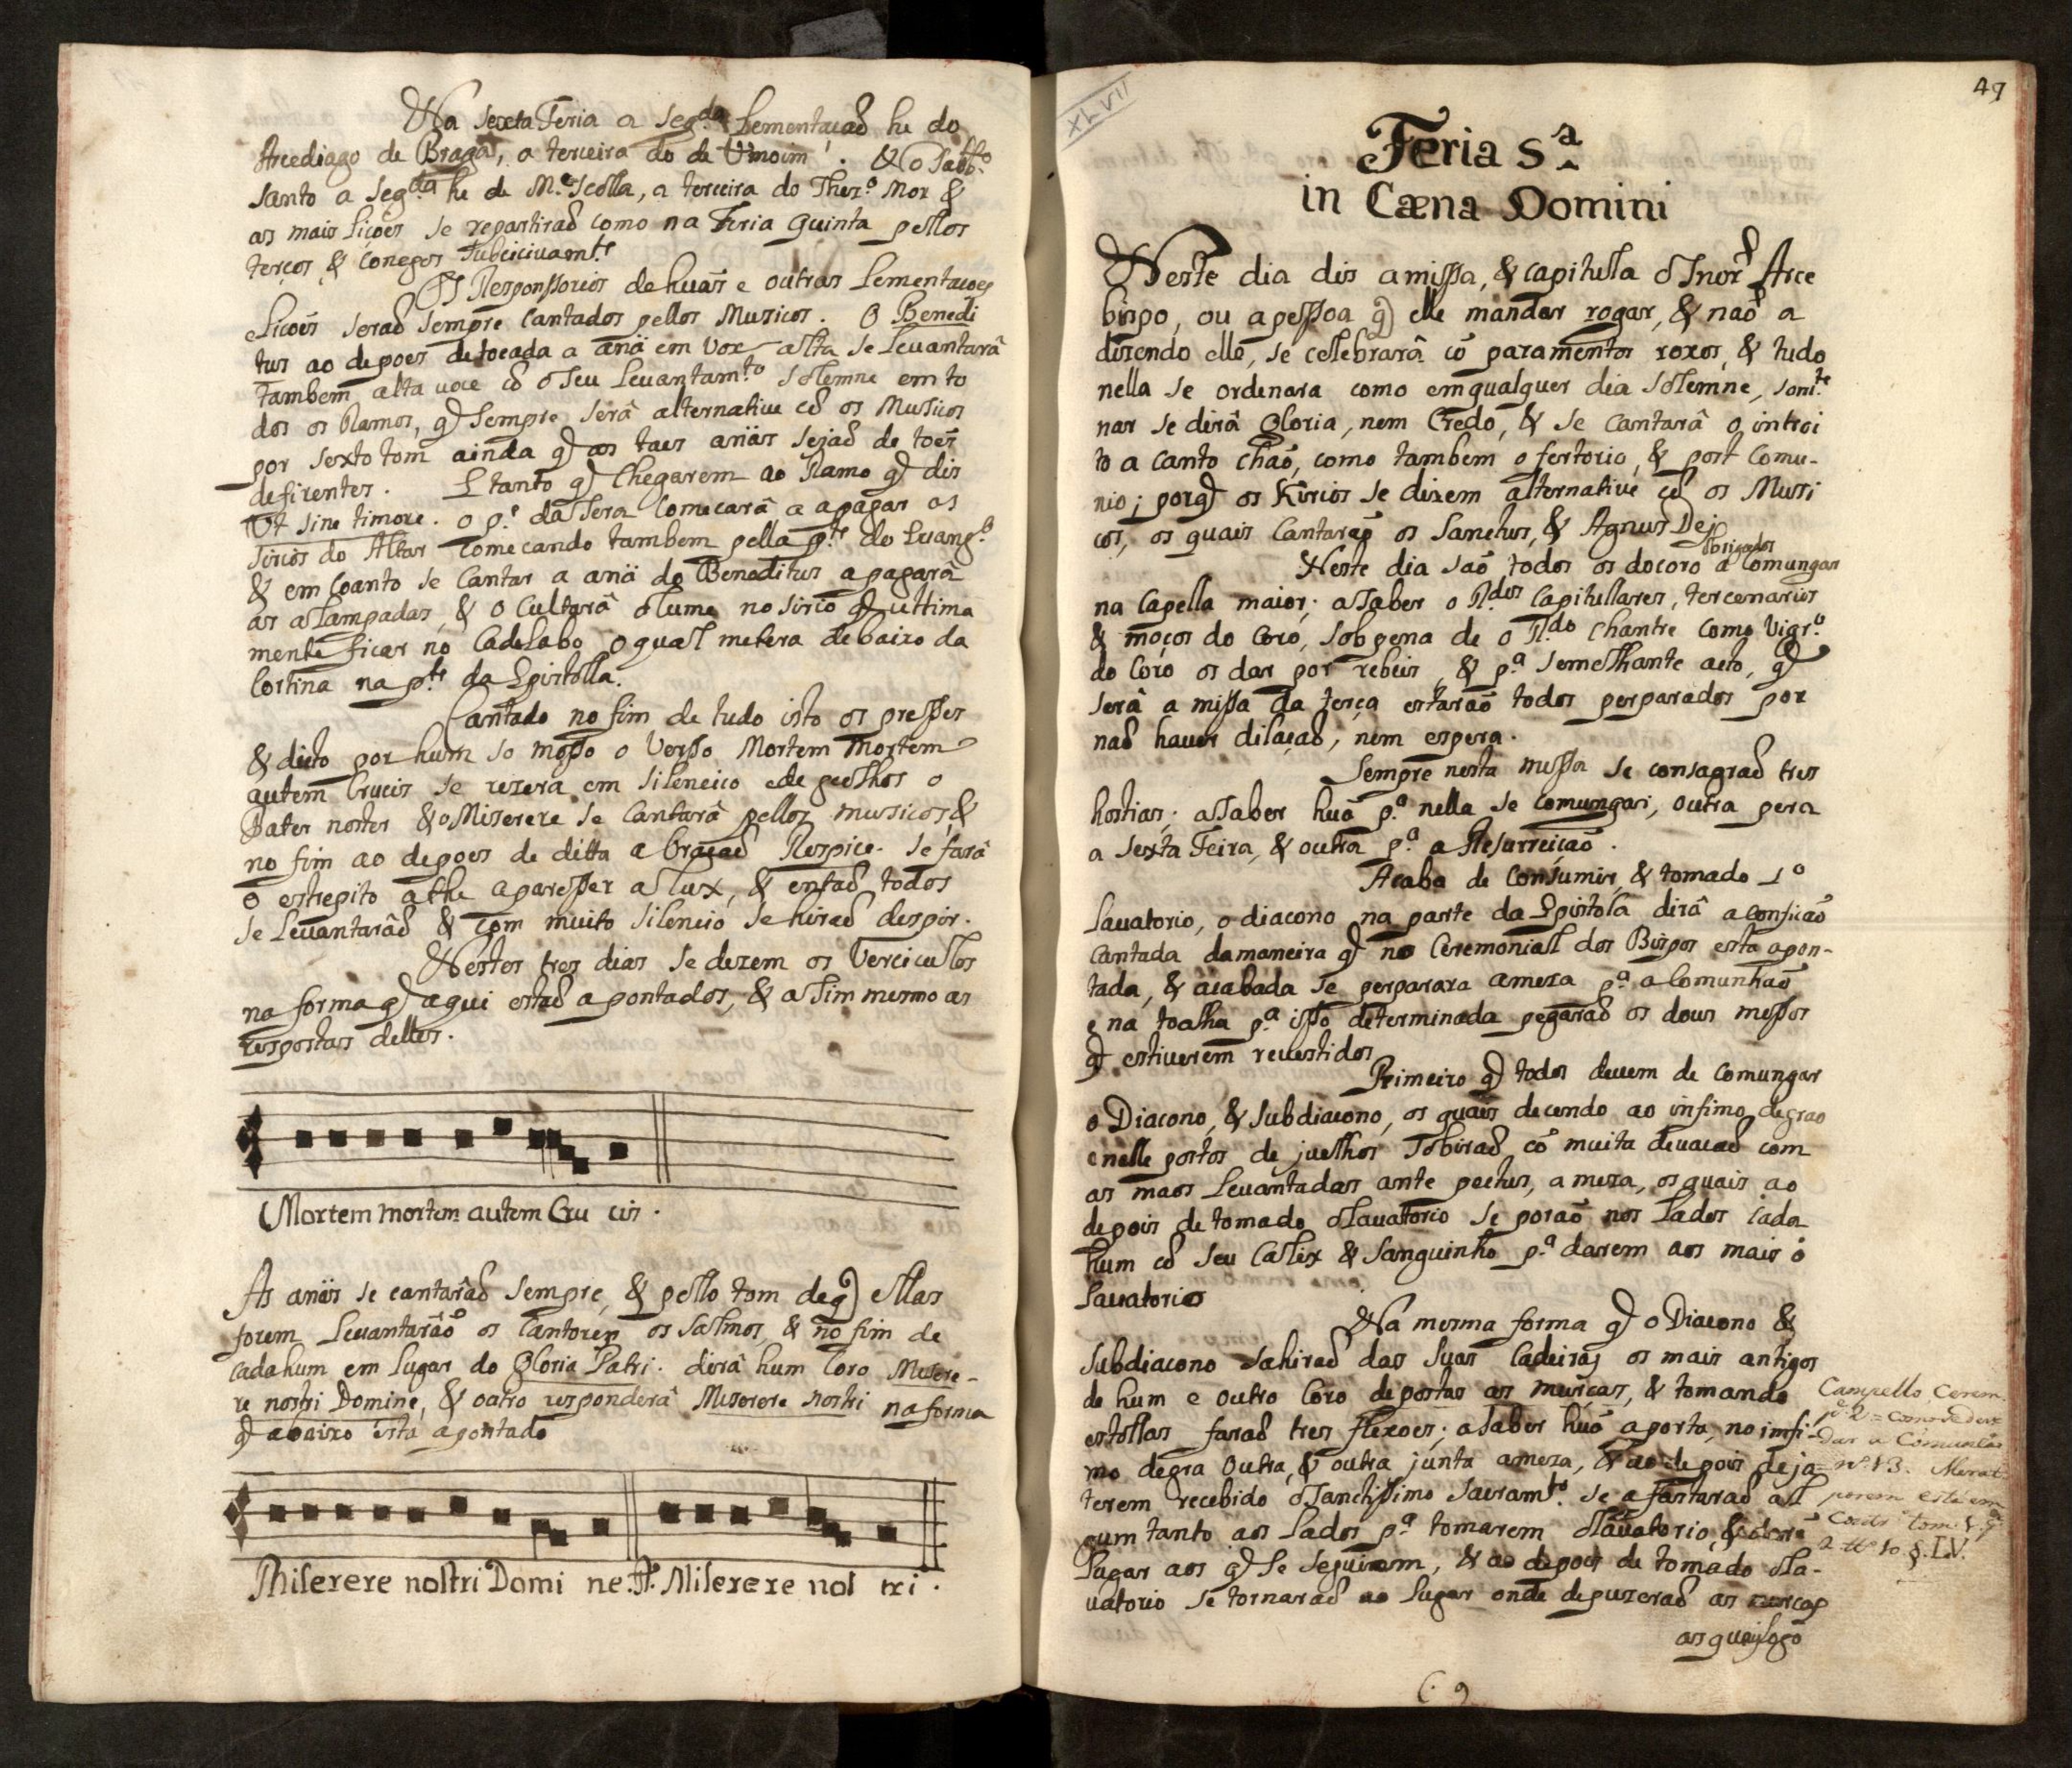 Na sexta Feria a seg.da Lementaçaõ he do
Arcediago de Braga, a terceira do de Vmoim. & No Sabb.o
santo a seg.da he de M.e scolla, a terceira do Thez.o Mor &
as mais liçoes se repartiraõ como na Feria quinta pellos
terços, & conegos
Os Responssorios de huas e outras Lementacoes
e licoes seraõ sempre cantados pellos Musicos. O Benedi
tus ao depoes de tocada a anã em vox alta se levantarâ
tambem alta voce cõ o seu levantam.to solemne em to
dos os Ramos, q sempre serâ alternative cõ os Musicos
por sexto tom ainda q as taes anãs sejaõ de toẽs
defirentes. E tanto q chegarem ao Ramo q dis
Ut sine timore. o p.e da sera comecarâ a apagar os
sirios do Altar comecando tambem pella p.te do Evang.o
& em coanto se cantar a anã do Beneditus apagarâ
as alampadas, & o cultarâ o lume no sirio q ultima
mente ficar no Cadelabo, o qual metera debaixo da
Cortina na p.te da Epistolla.
Cantado no fim de tudo isto os presses
& dicto por hum so mosso o Versso Mortem Mortem
autem Crucis se rezera em silencico e de geolhos o
Pater noster & o Miserere se cantarâ pellos musicos, &
no fim ao depoes de ditta a Oraçaõ Respice. se farâ
o estrepito athe aparesser a lux, & entaõ todos
se levantarâõ & com muito silencio se hiraõ despir.
Nestes tres dias se dezem os Vercicullos
na forma q aqui estaõ apontados, & assim mesmo as
respostas delles.
Mortem mortem autem Cru cis.
As anãs se cantarâõ sempre, & pello tom de q ellas
forem Levantarâõ os Cantores os salmos, & no fim de
cada hum em lugar do Gloria Patri. dirâ hum Coro Misere-
re nostri Domine, & outro responderâ Miserere nostri na forma
q abaixo esta apontado
Miserere nostri Domi ne. R. Miserere nos tri.
XLVII
49
Feria 5.a
in Cæna Domini
Neste dia dis a missa, & capitulla o Arce
bispo, ou a pessoa q elle mandar rogar, & naõ a
dizendo elle, se cellebrarâ cõ paramentos roxos, & tudo
nella se ordenara como em qualquer dia solemne, som.te
nar se dirâ Gloria, nem Credo, & se cantarâ o introi
to a canto chaõ, como tambem o fertorio, & post Comu-
nio; porq os Kirios se dizem alternative cõ os Musi
cos, os quais cantaraõ os Sanctus, & Agnus Dej
Neste dia saõ todos os do coro obrigados a Comungar
na Capella maior; a saber o R.dos Capitullares, tercenarios
& moços do Coro, sob pena de o R.do Chantre como Vigr.o
do Coro os dar por rebeis, & p.a semelhante acto, q
serâ a missa da terça estaraõ todos perparados por
naõ haver dilaçaõ, nem espera.
Sempre nesta missa se consagraõ tres
hostias; a saber huã p.a nella se comungar, outra pera
a sexta Feira, & outra p.a a Resurreicaõ.
Acaba de consumir, & tomado 1o
lavatorio, o diacono na parte da Epistola dirâ a conficaõ
cantada da maneira q no Ceremoniall dos Bispos esta apon-
tada, & acabada se perparara a meza p.a a Comunhaõ
e na toalha p.a isso determinada pegaraõ os dous mossos
q estiverem revestidos
Primeiro q todos devem de comungar
o Diacono, & subdiacono, os quais decendo ao infimo degrao
e nelle postos de juelhos sobiraõ cõ muita devacaõ com
as maos levantadas ante pectus, a meza, os quais ao
depois de tomado o lavatorio se poraõ nos lados cada
hum cõ seu calix & sanguinho p.a darem aos mais o
lavatorio
Na mesma forma q o Diacono &
subdiacono sahiraõ das suas cadeiras os mais antigos
de hum e outro Coro depostas as murcas, & tomando
estollas faraõ tres flexoes; a saber huã a porta, no imfi-
mo degra outra, & outra junta a meza, & ao depois de ja
terem recebido o sanctissimo sacram.to se afastaraõ al
gum tanto aos lados p.a tomarem o lavatorio, &
lugar aos q se seguirem, & ao depois de tomado o la-
vatorio se tornaraõ ao lugar onde depuzeraõ as murcas
as quais logo
Campello, Cerem.
dar a Comunhaõ
nº 13. Merat.
porem está em
tom. 1.
2 tt.o 10 §. LV.